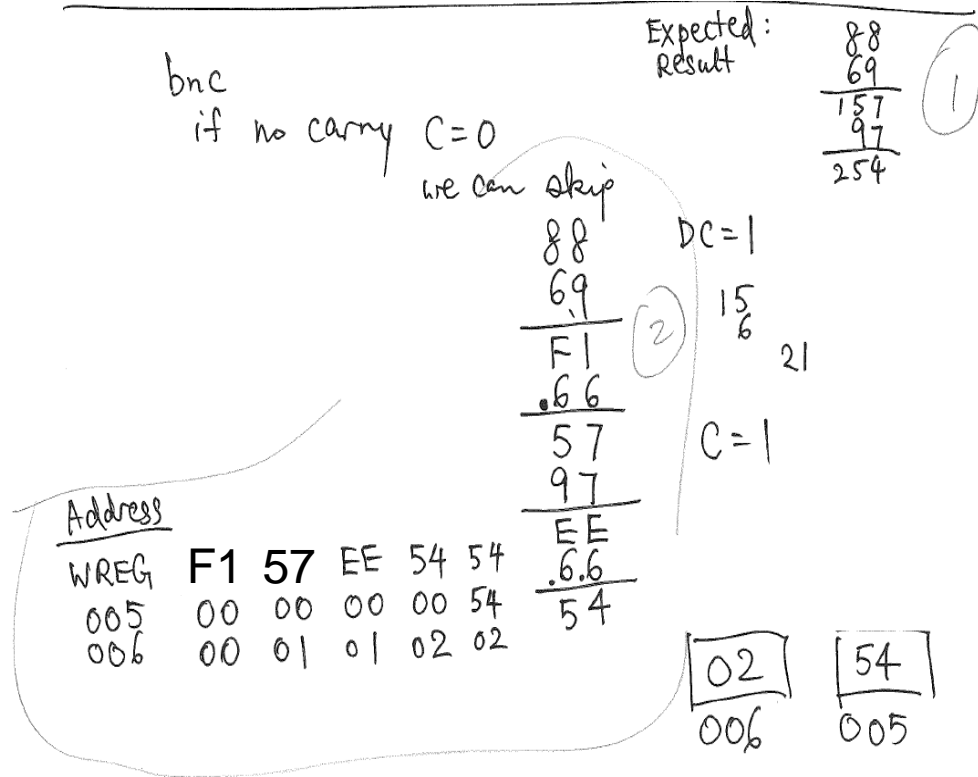 Expected:
Result
88
69
157
97
254
1
bnc
if no carry C=0
we can skip
88
69
F1
.66
57
97
EE
.6.6
54
2
DC=1
15
6
21
C=1
Address
WREG F1 57 EE 54 54
005 00 00 00 00 54
006 00 01 01 02 02
02 54
006 005